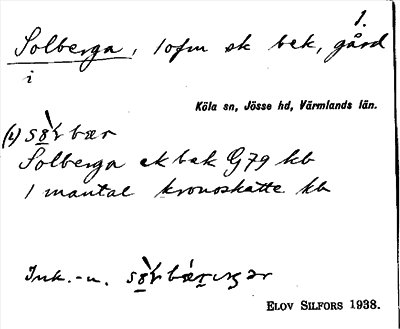 1.
Solberga, 1 ofm ek bek, gård
i
Köla sn, Jösse hd, Värmlands län.
(i)
Solberga ek bek G79 kb
1 mantal kronoskatte kb
Ink.-n.
ELOV SILFORS 1938.